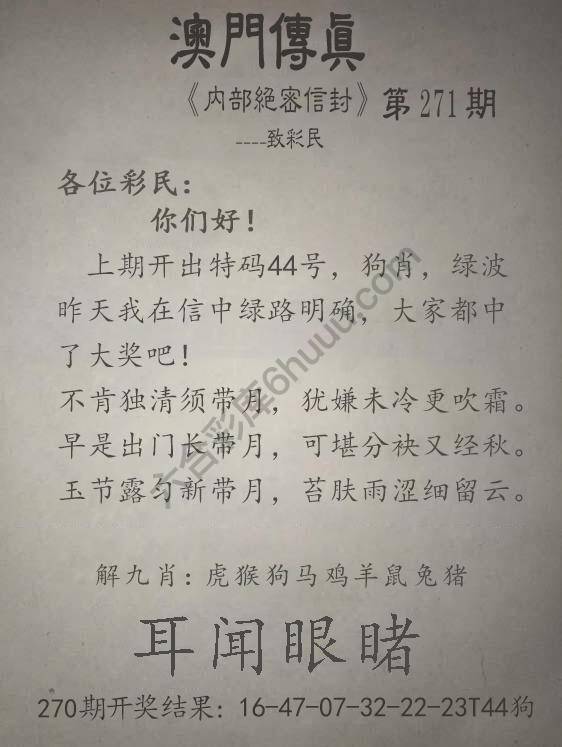 澳門傳眞
《内部絕密信封》第271期
----致彩民
各位彩民：
你们好！
上期开出特码44号，狗肖，绿波
昨天我在信中绿路明确，大家都中
了大奖吧！
不肯独清须带月，犹嫌未冷更吹霜。
早是出门长带月，可堪分袂又经秋。
玉节露匀新带月，苔肤雨涩细留云。
解九肖：虎猴狗马鸡羊鼠兔猪
耳闻眼睹
270期开奖结果：16-47-07-32-22-23T44狗
六合彩库6huuu.com